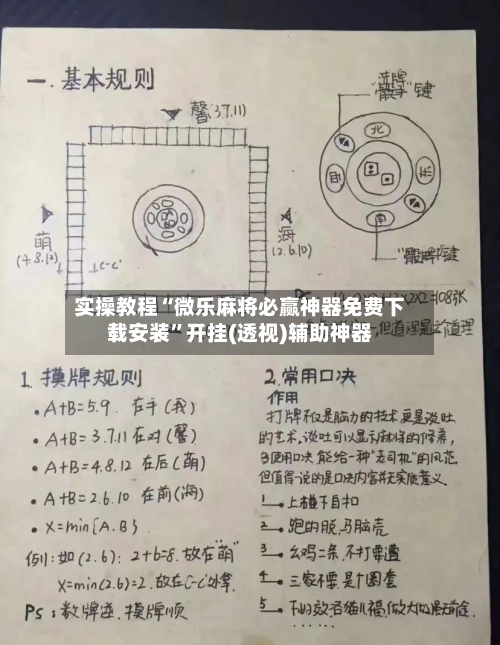 一.基本规则
“洗牌
骰子”键
馨(3.7.11)
北
西
东
南
萌
(4.8.12)
C-C'
海
(2.6.10)
键
2X2=108张
实操教程“微乐麻将必赢神器免费下
载安装”开挂(透视)辅助神器
但道理是这个道理
1.摸牌规则
• A+B=5.9. 在于(我)
• A+B=3.7.11 在对(馨)
• A+B=4.8.12 在后(萌)
• A+B=2.6.10 在前(海)
• X=min{A.B}
例:如(2.6): 2+6=8.故在“萌”
X=min(2.6)=2.故在C-C'处拿.
Ps:数牌逆.摸牌顺
2.常用口决
作用
打牌不仅是脑力的技术更是谈吐
的艺术,谈吐可以显示麻将的修养,
多使用口决,能给一种“老司机”的风范
但值得说的是口决内容并无实质意义.
1. 上碰下自扣
2. 跑的脱,马脑壳
3. 幺鸡二条,不打要遭
4. 三家不要,是个圈套
5.
......